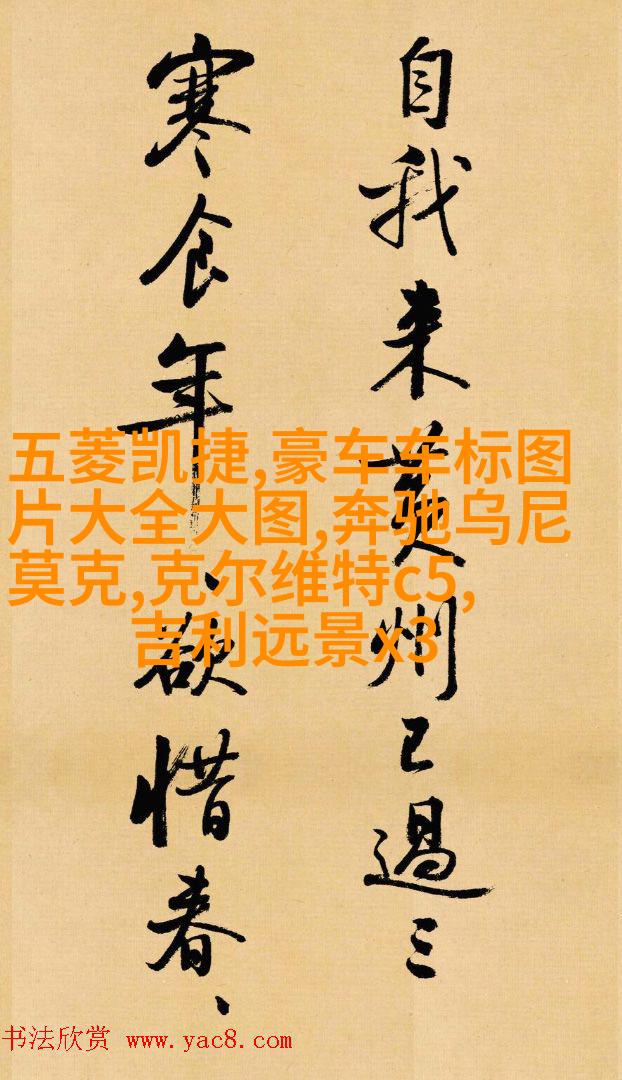 自我来黄州已過三
寒食年〻欲惜春、
五菱凯捷,豪车车标图
片大全大图,奔驰乌尼
莫克,克尔维特c5,
吉利远景x3
书法欣赏 www.yac8.com